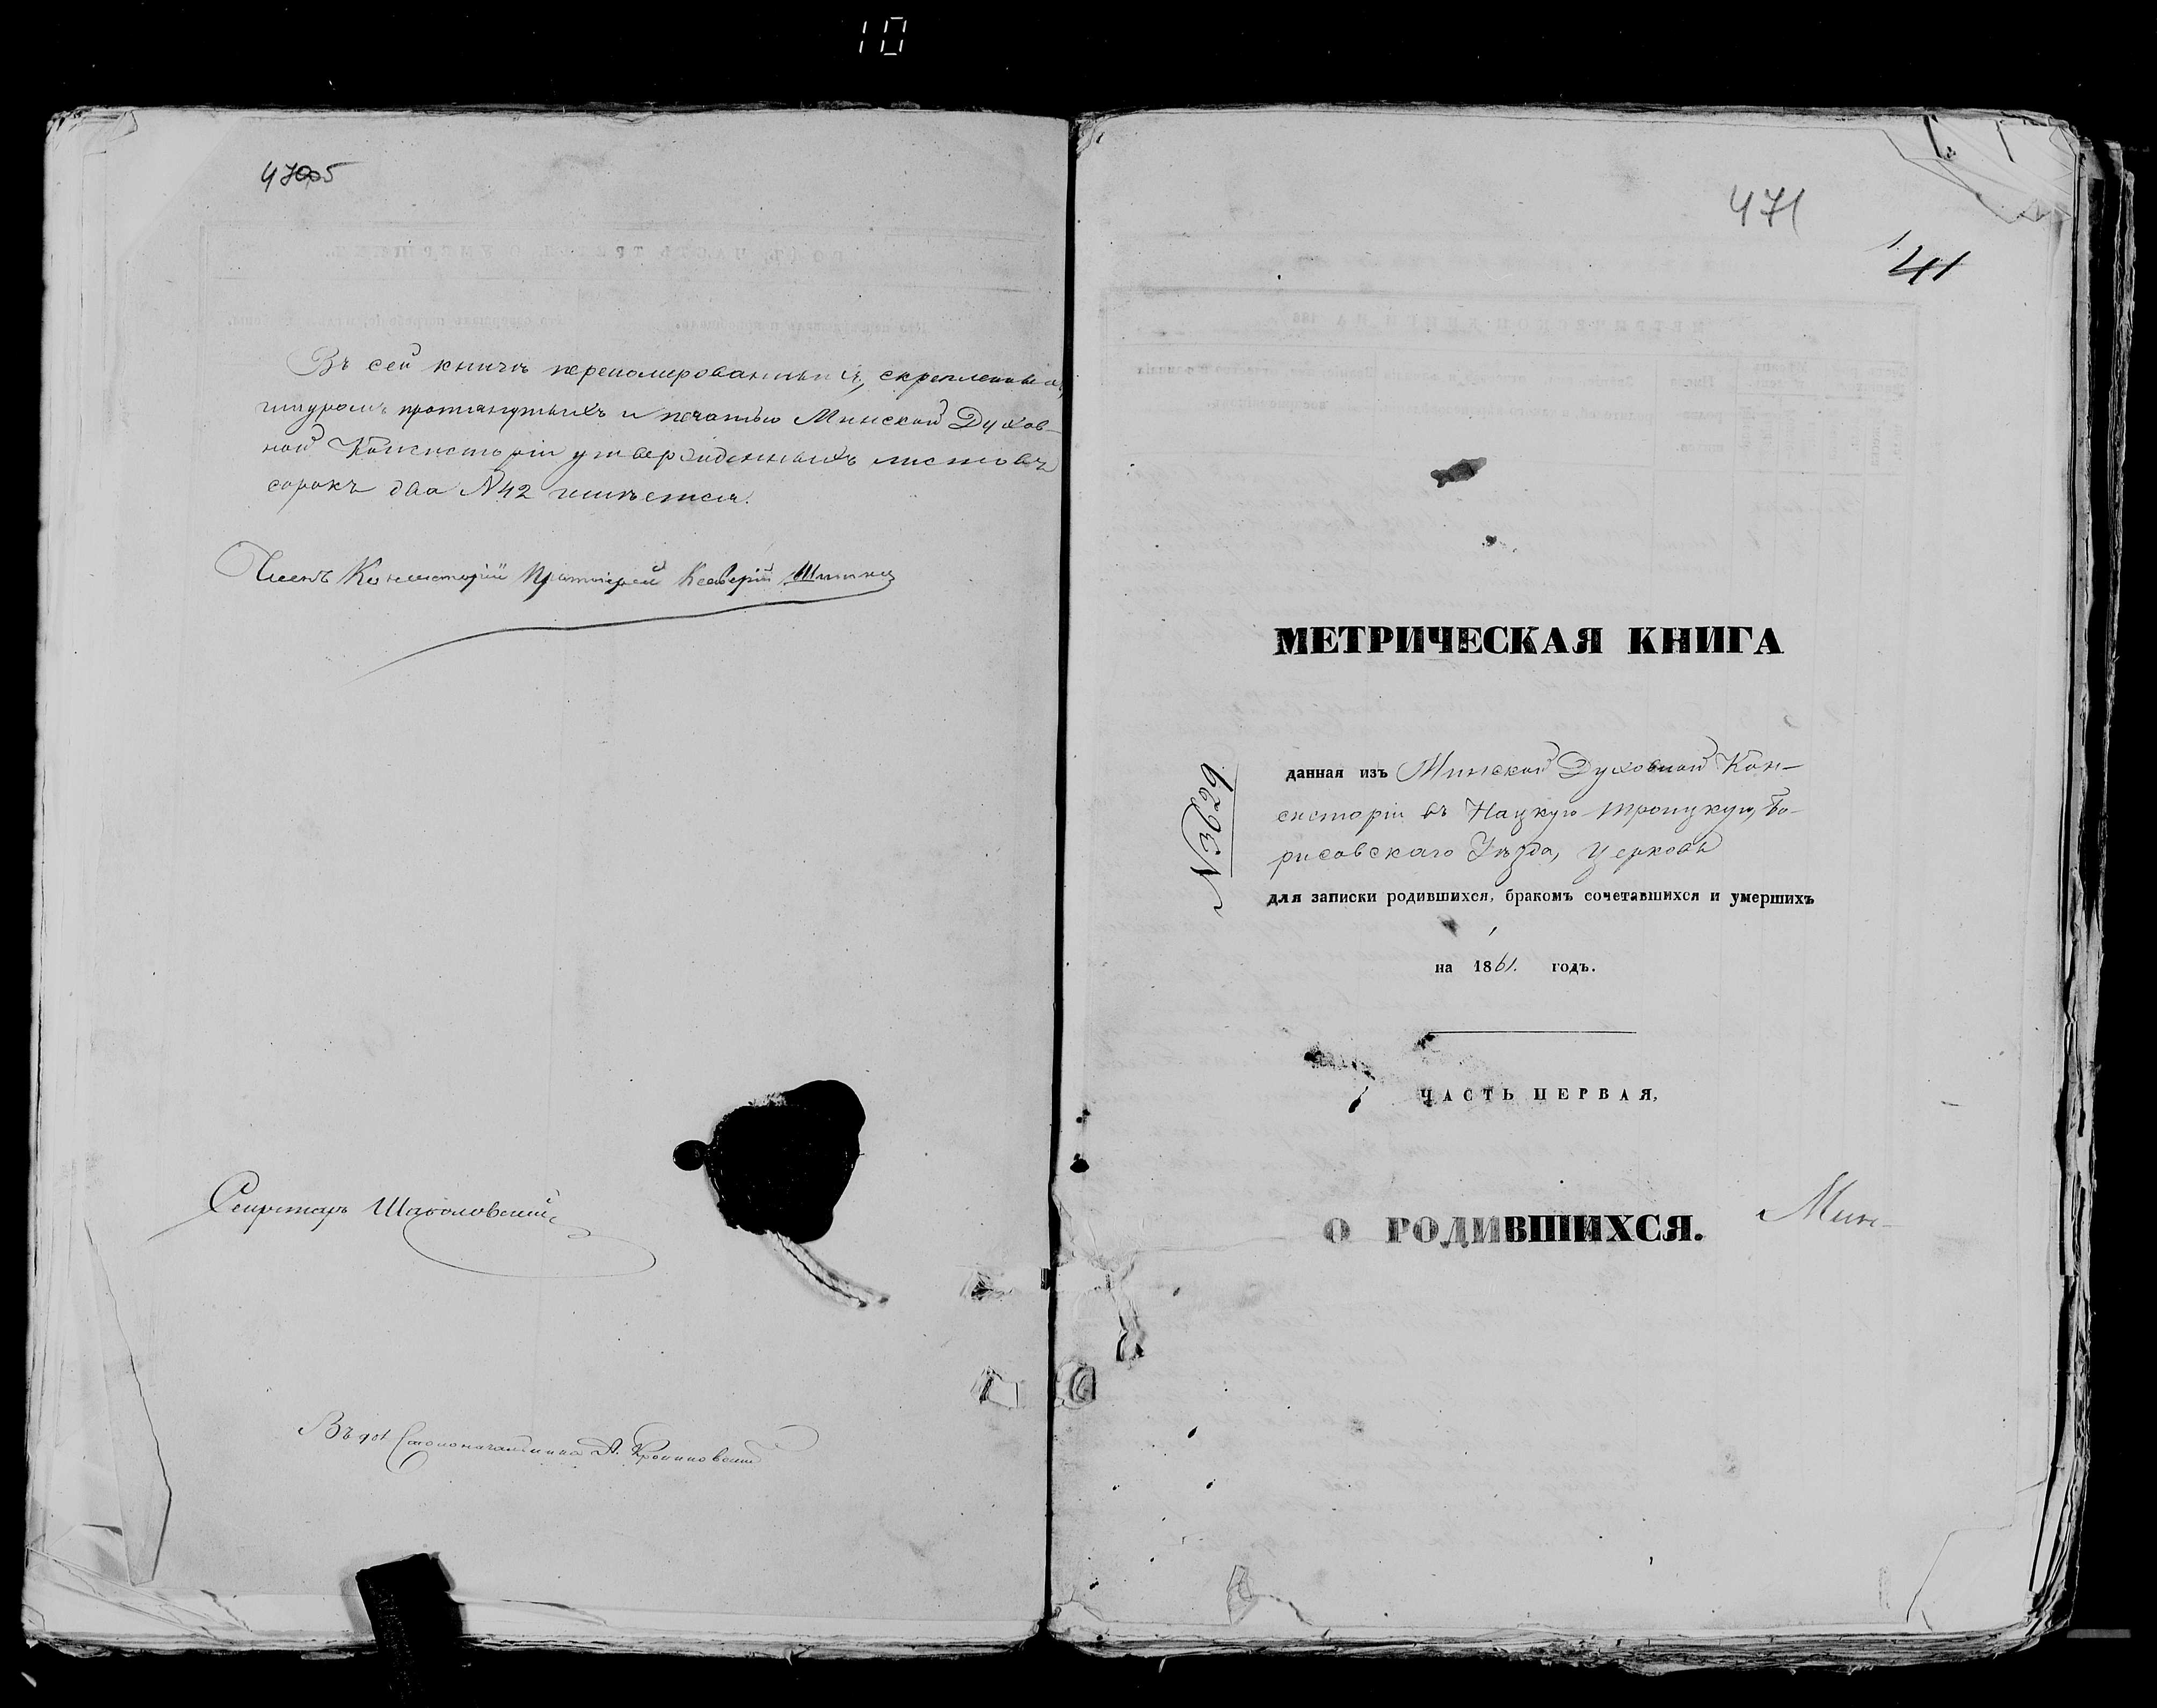 10
470об
Въ сей книгѣ перенумерованныхъ, скрепленныхъ,
шнуромъ протянутыхъ и печатью Минской Духов-
ной Консисторіи утвержденныхъ листовъ
сорокъ два №42 имѣется.
Членъ Консисторіи Протоіерей
Секретарь
Столоначальника А.
471
41
МЕТРИЧЕСКАЯ КНИГА
№3629
данная изъ Минской Духовной Кон-
систоріи въ Нацкую Троицкую, Бо-
рисовскаго Уѣзда, Церковь
для записки родившихся, бракомъ сочетавшихся и умершихъ
на 1861. годъ.
ЧАСТЬ ПЕРВАЯ,
О РОДИВШИХСЯ.
Мин-